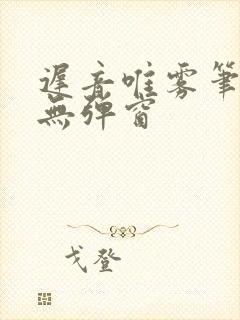 遲音唯雾筆
無弹窗
戈登